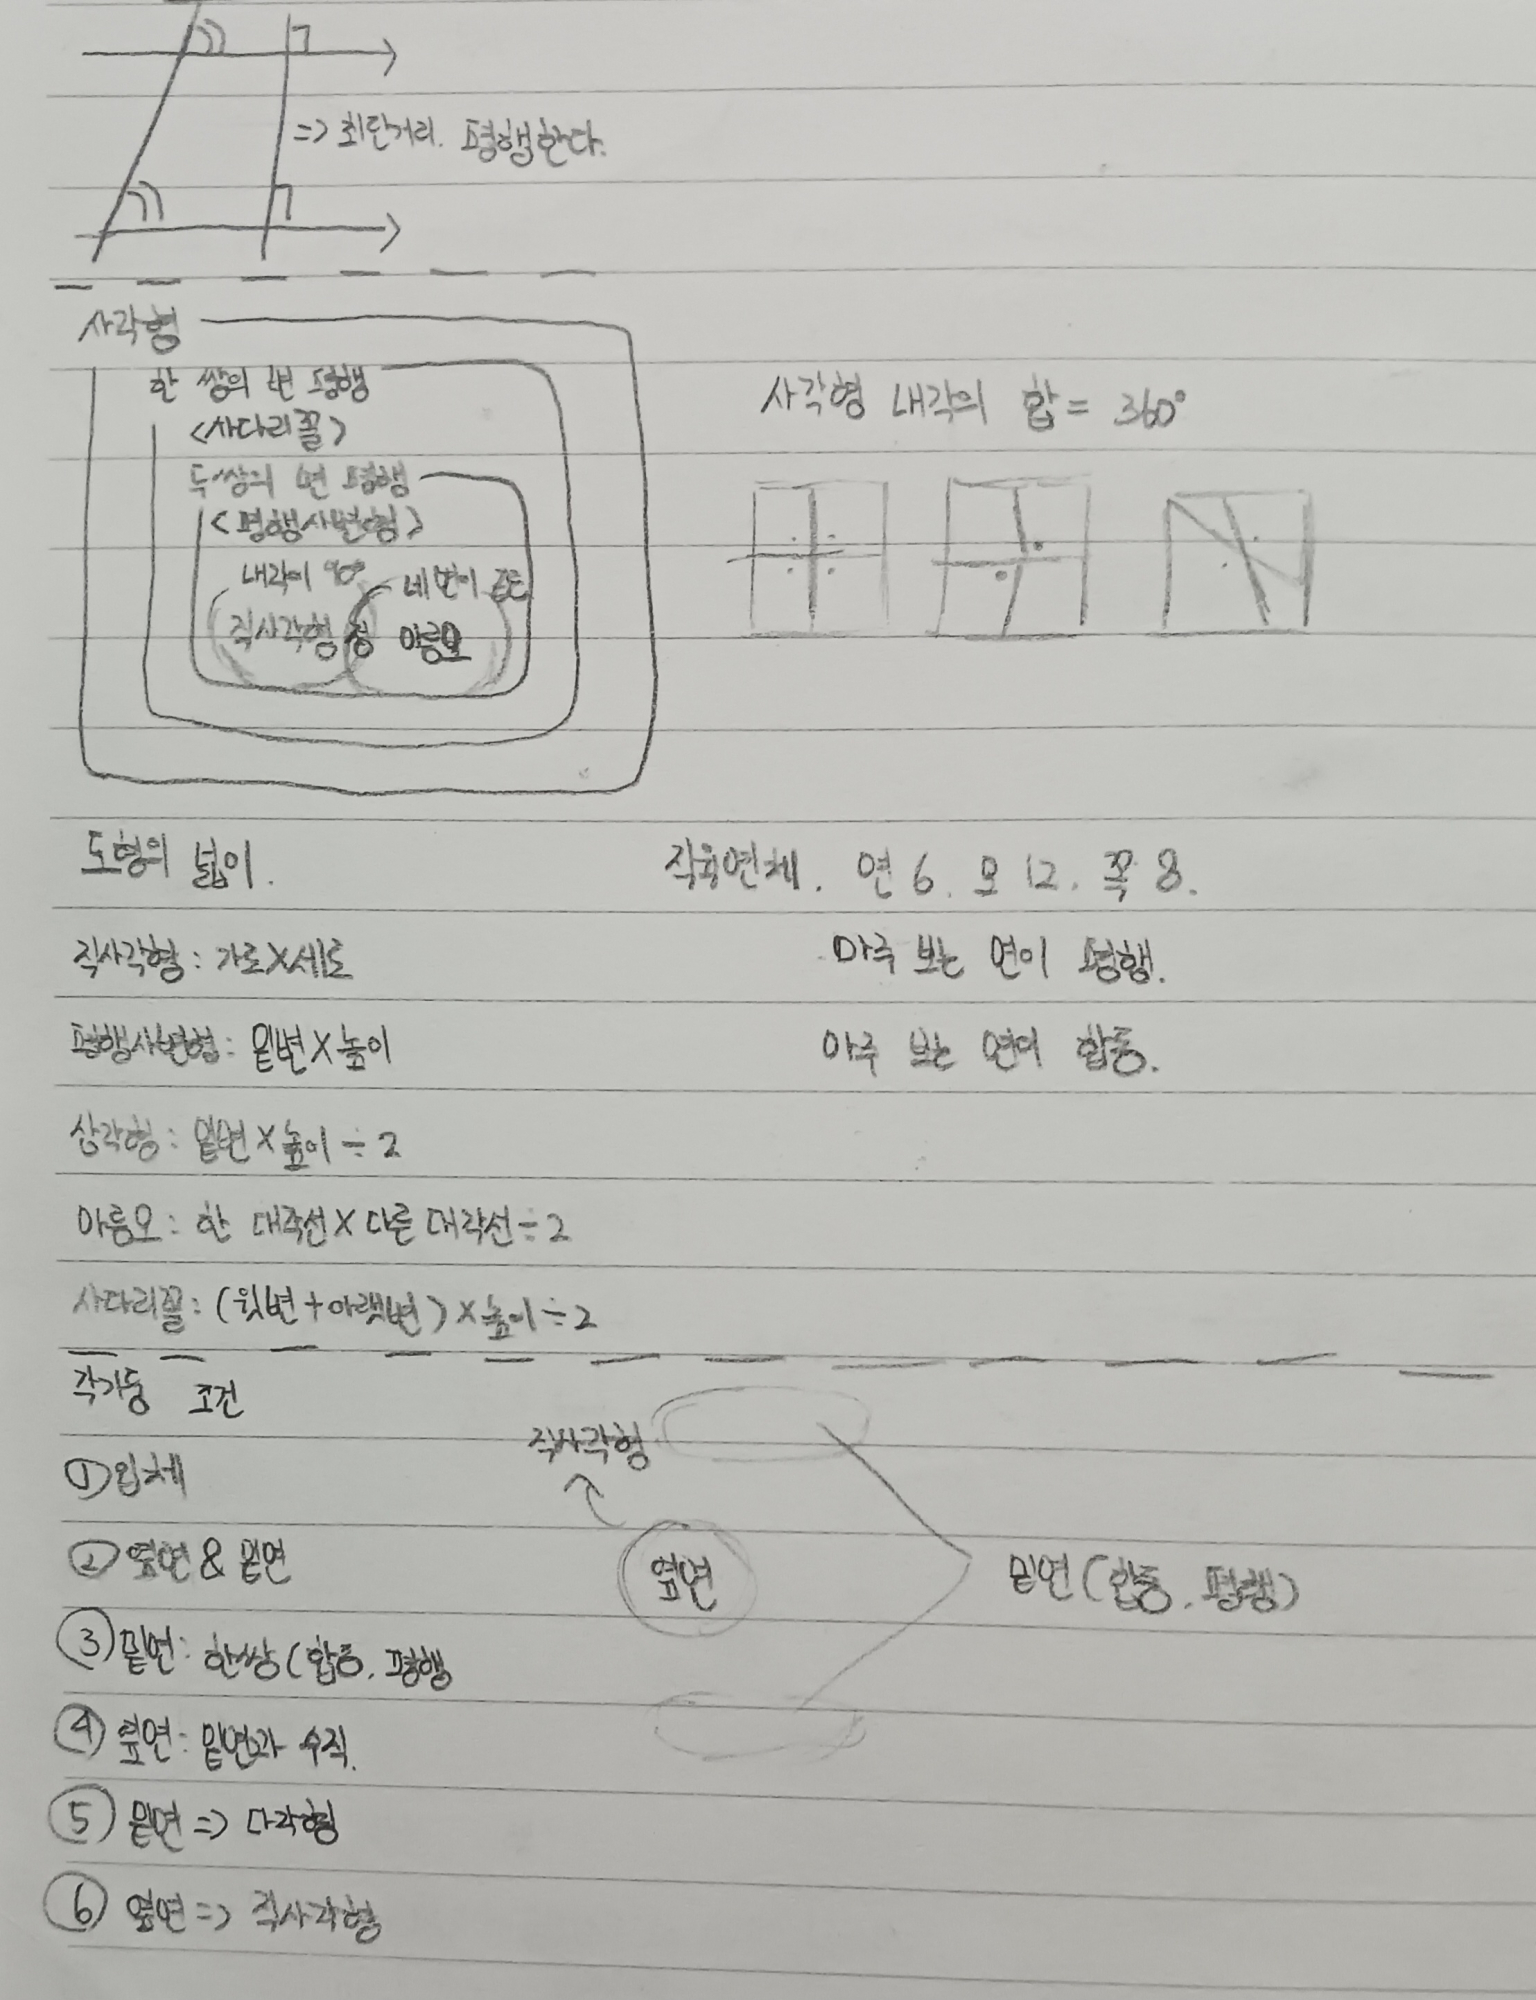 => 최단거리. 평행한다.
사각형
한 쌍의 변 평행
<사다리꼴>
두 쌍의 변 평행
<평행사변형>
내각이 90° 네 변이 같은
직사각형 정 마름모
사각형 내각의 합 = 360°
도형의 넓이.
직사각형: 가로X세로
평행사변형: 밑변X높이
삼각형: 밑변X높이÷2
마름모: 한 대각선X다른 대각선÷2
사다리꼴: (윗변+아랫변)X높이÷2
직육면체. 면 6. 모 12. 꼭 8.
마주 보는 면이 평행.
마주 보는 면이 합동.
각기둥 조건
① 입체
② 옆면 & 밑면
③ 밑면: 한쌍(합동. 평행
④ 옆면: 밑면과 수직.
⑤ 밑면 => 다각형
⑥ 옆면 => 직사각형
직사각형
옆면
밑면(합동. 평행)